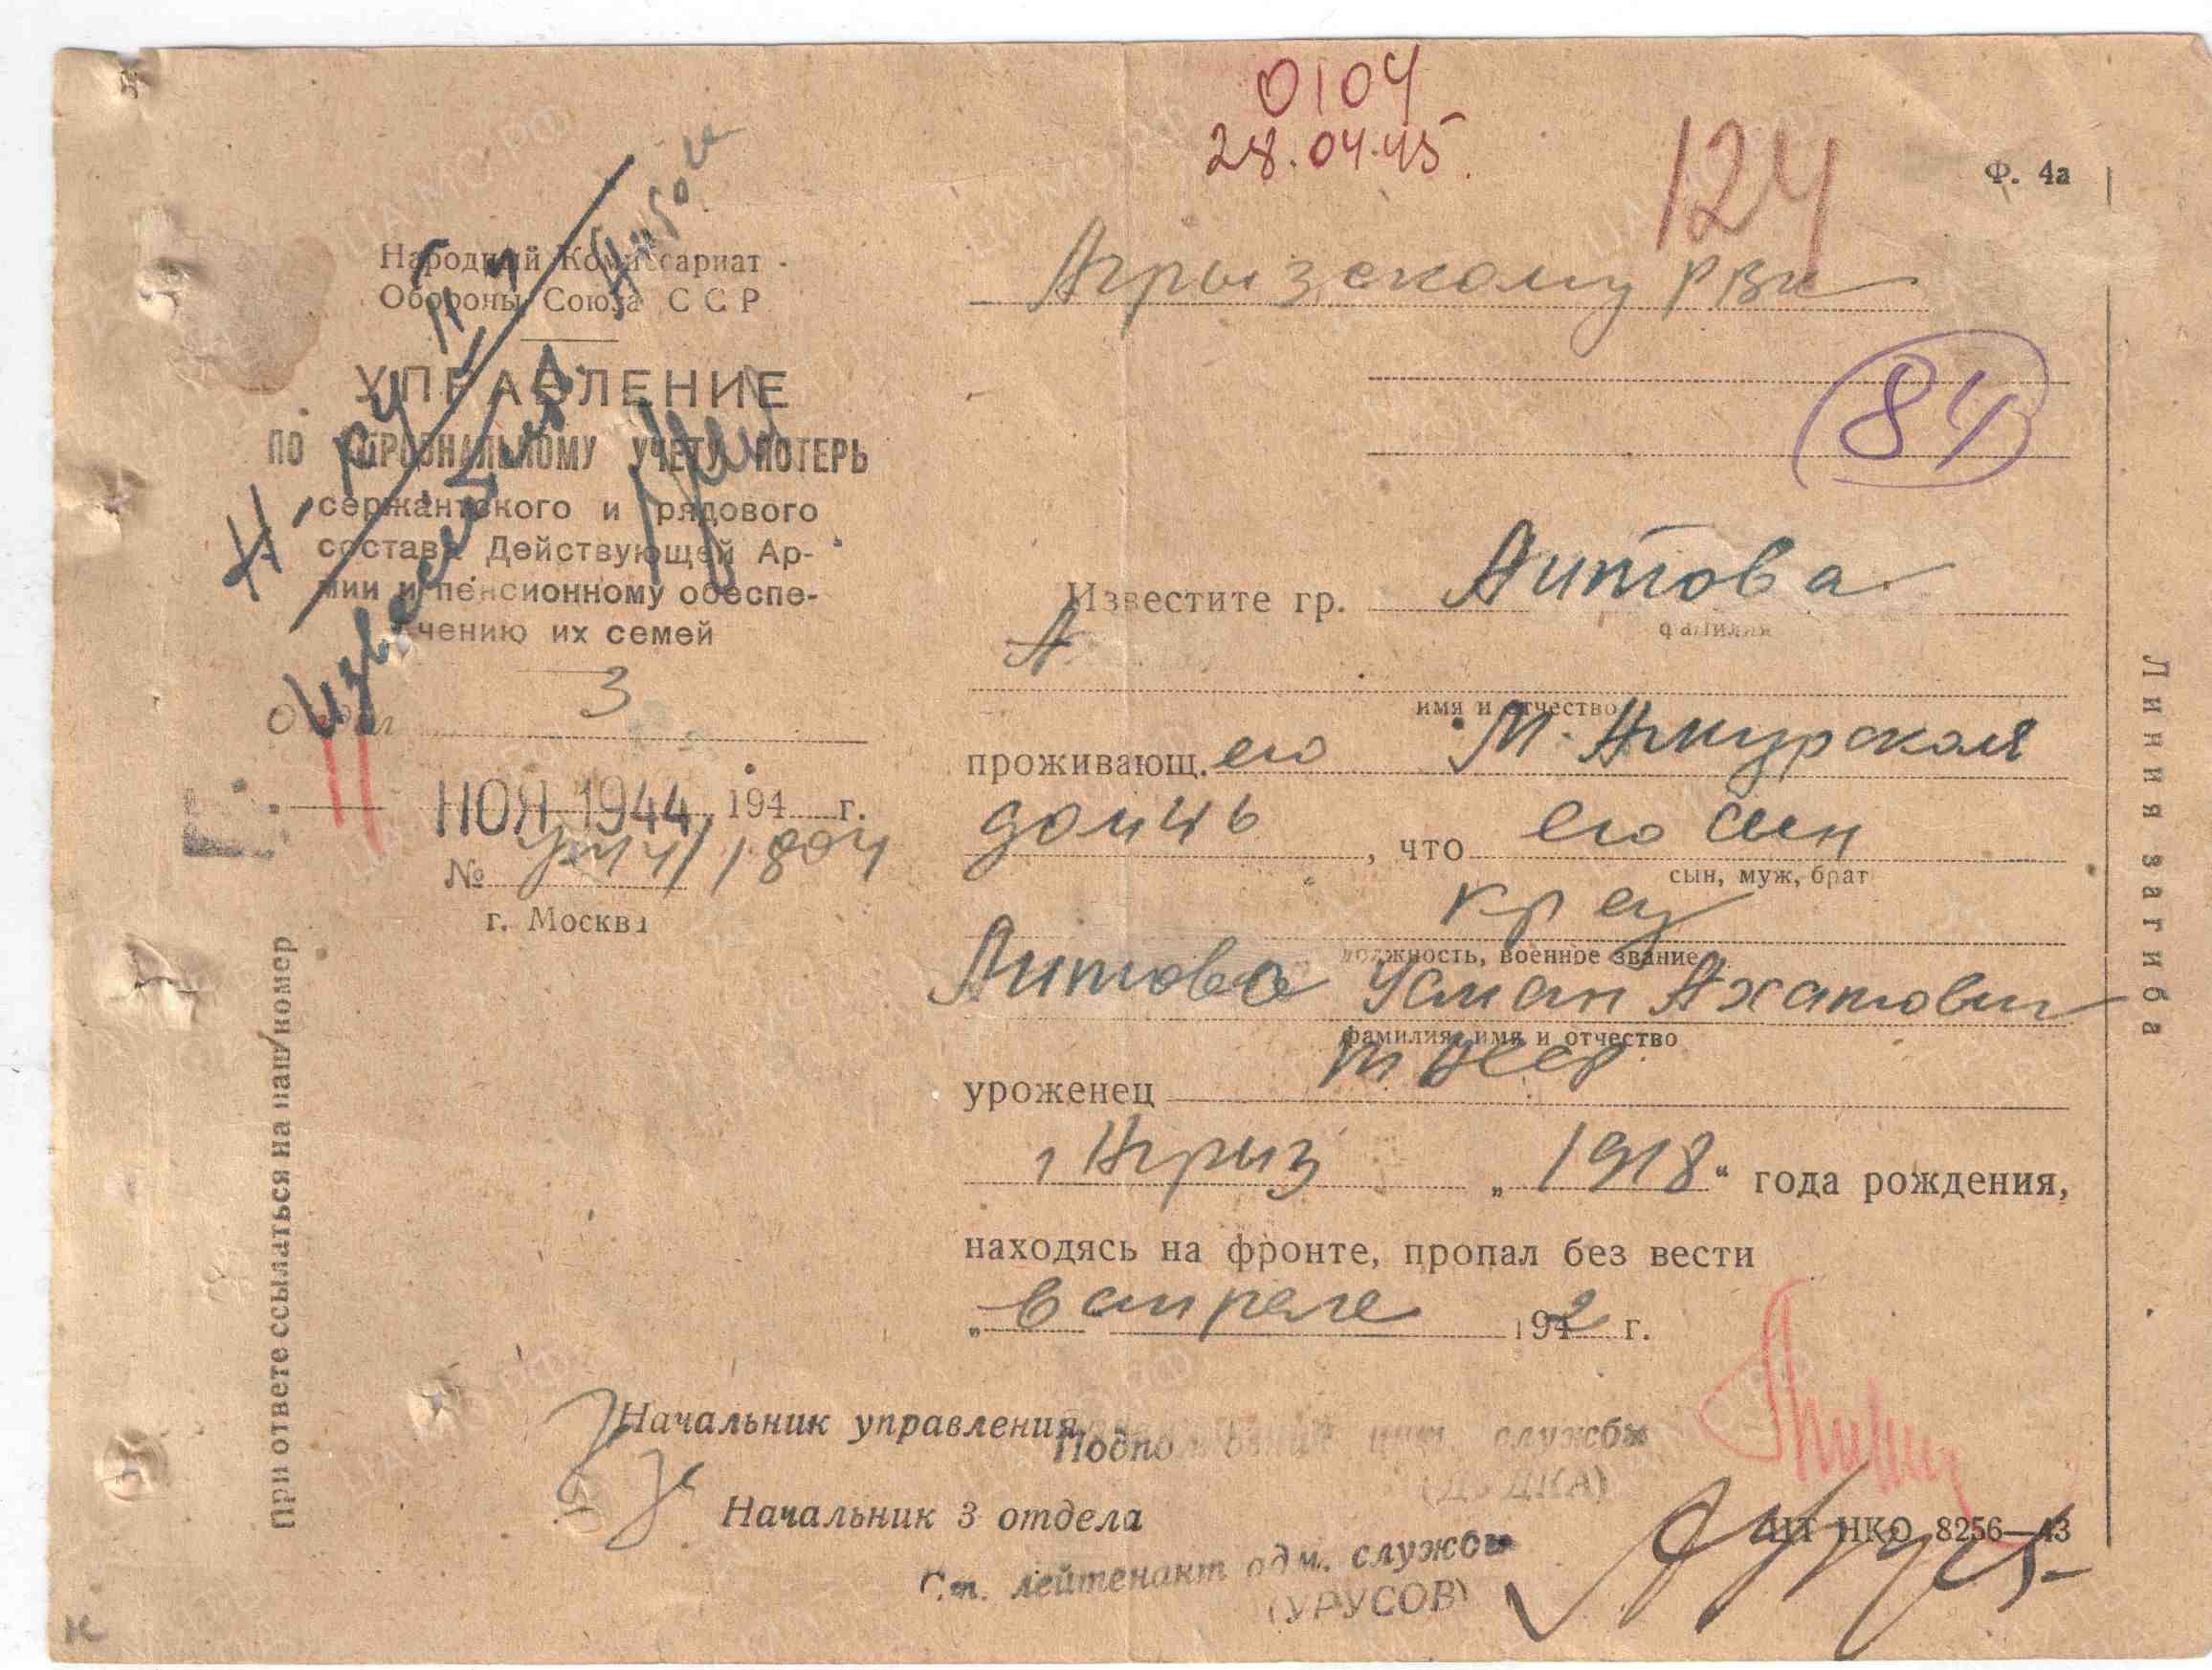 0104
28.04.45.
124
Ф. 4а
Народный Комиссариат
Обороны Союза ССР
УПРАВЛЕНИЕ
ПО ПЕРСОНАЛЬНОМУ УЧЕТУ ПОТЕРЬ
сержантского и рядового
состава Действующей Ар-
мии и пенсионному обеспе-
чению их семей
Отдел 3
11 НОЯ 1944 194 г.
№ 1804
г. Москва
При ответе ссылаться на наш номер
Агрызскому РВК
84
Известите гр. Аитова
фамилия
А
имя и отчество
проживающ. его М. Амурская
дом 46, что его сын
сын, муж, брат
кр-ец
должность, военное звание
Аитова Усман Ахатович
фамилия, имя и отчество
уроженец ТАССР
г Агрыз „1918“ года рождения,
находясь на фронте, пропал без вести
„в апреле 1942 г.
Начальник управления
Подполковник инт. службы
(ДУДКА)
Начальник 3 отдела
Ст. лейтенант адм. службы
(УРУСОВ)
ЦП НКО 8256—43
Линия загиба